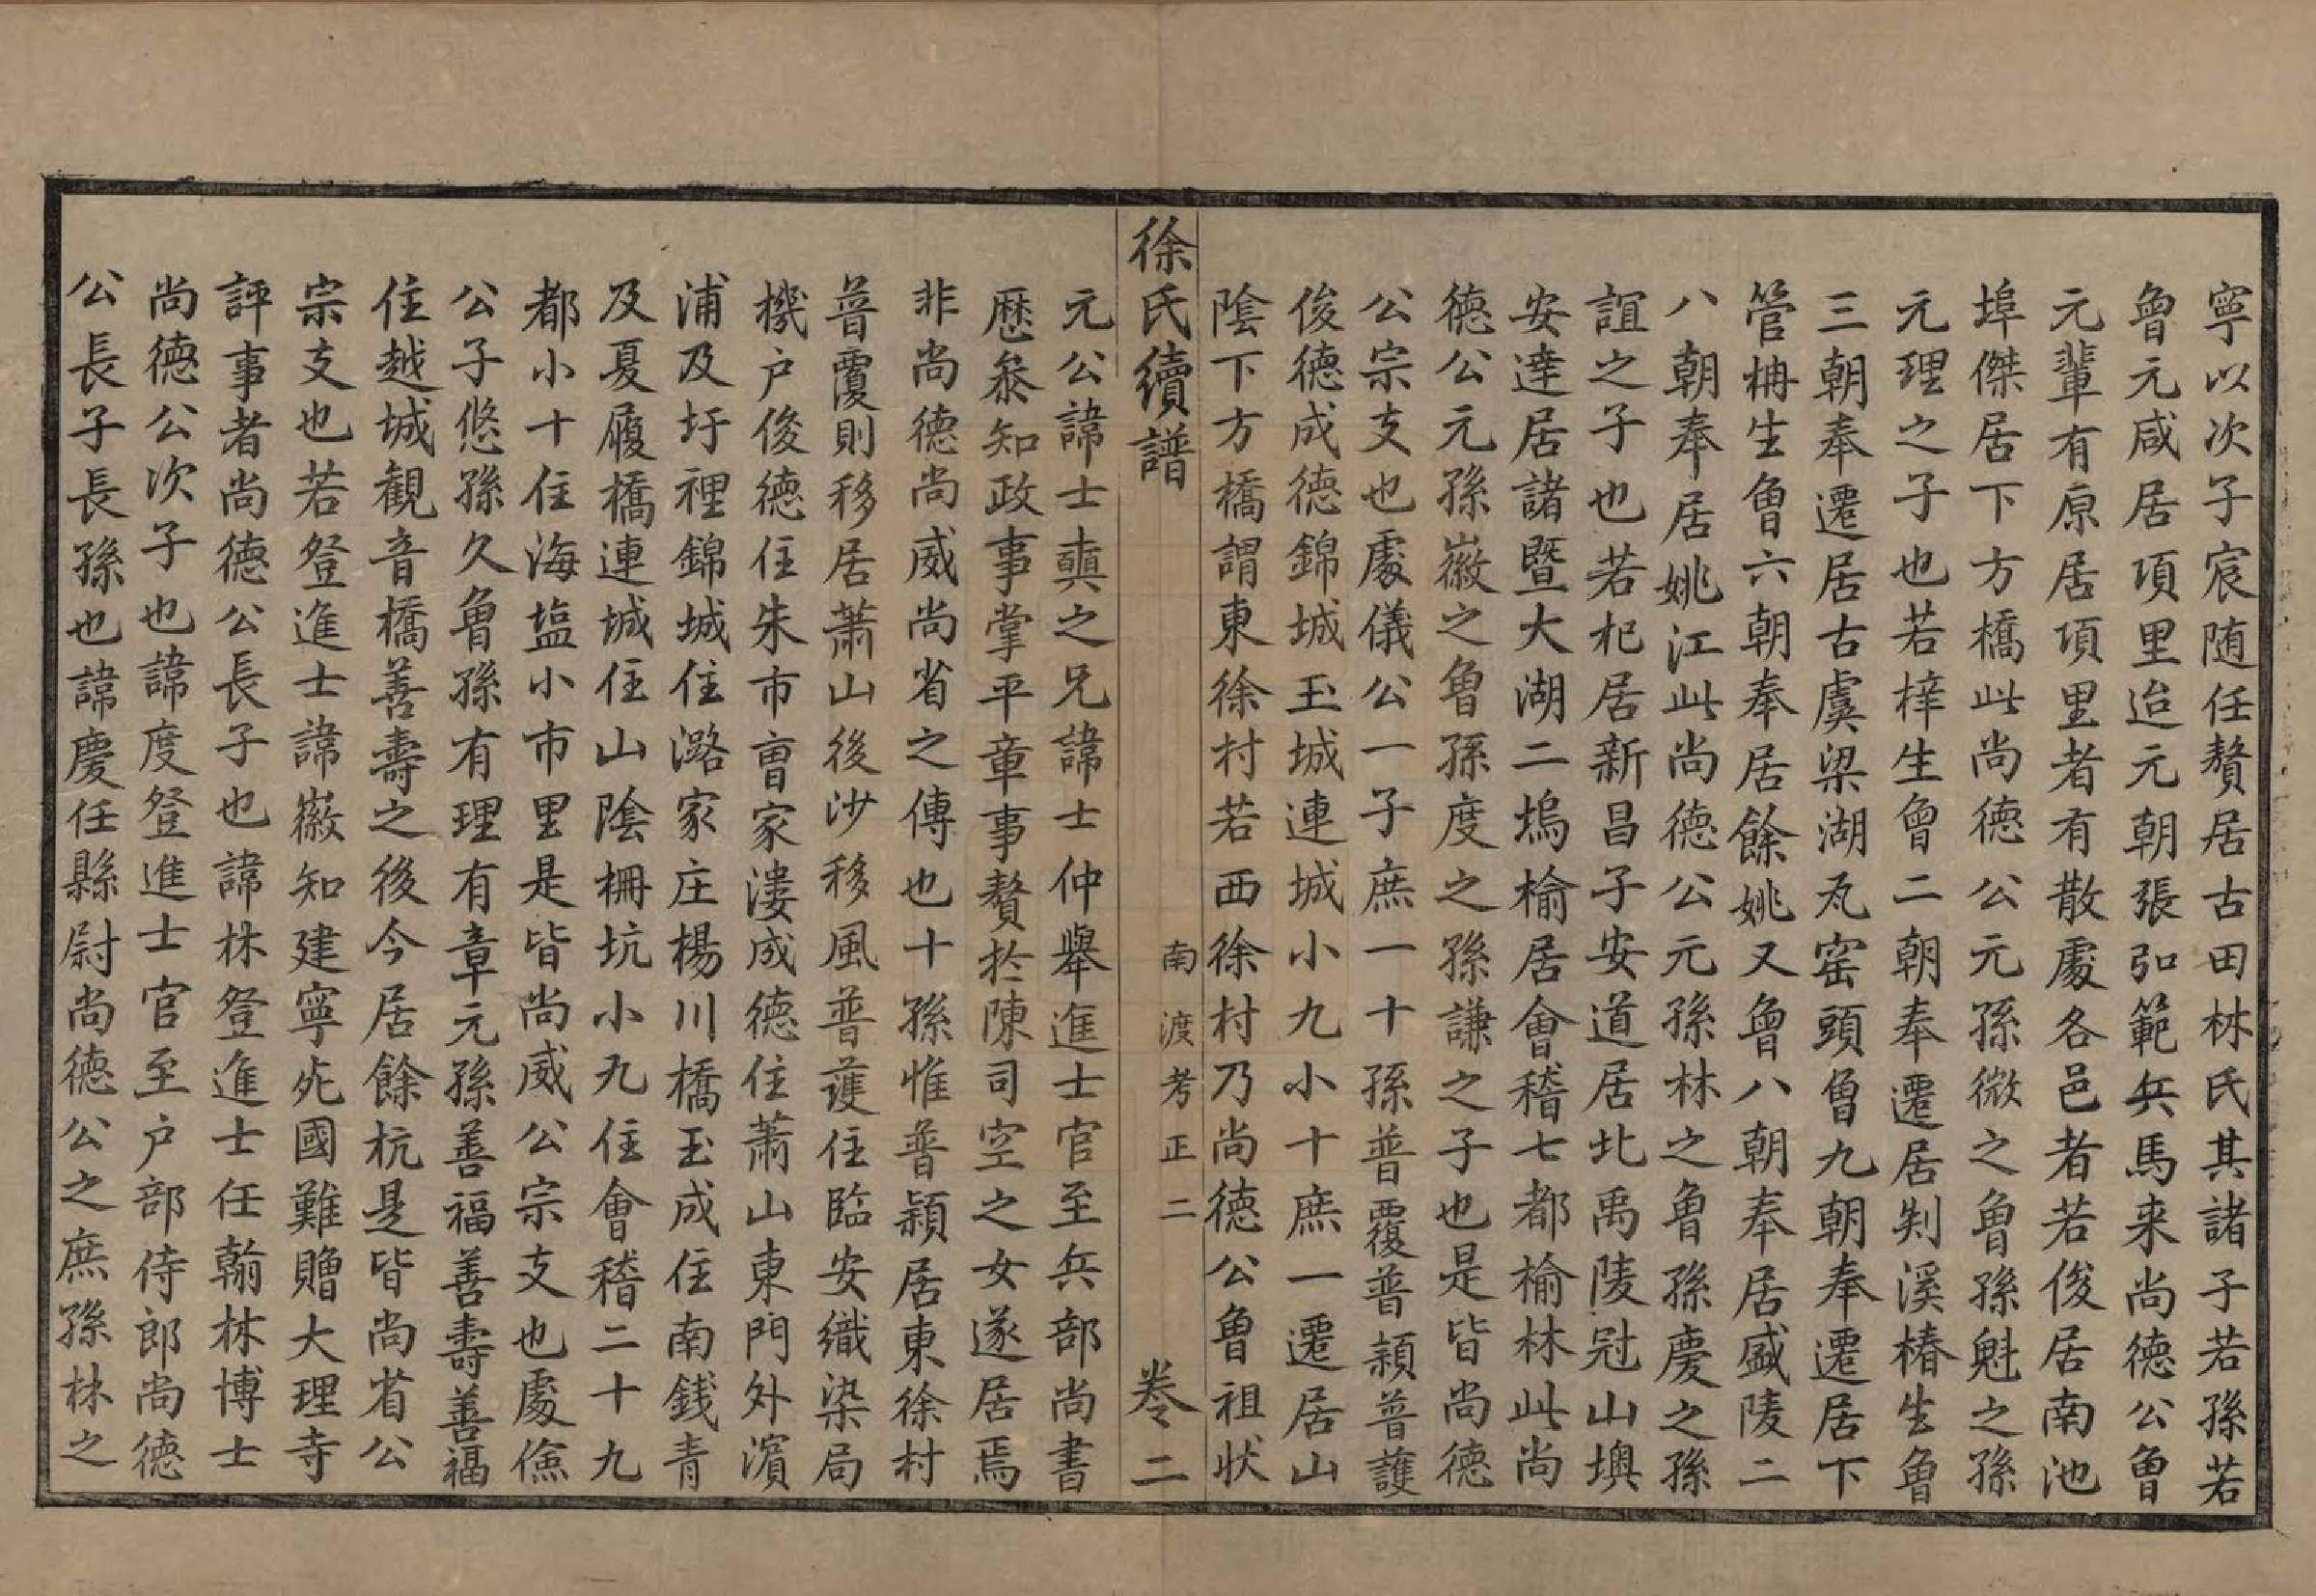 寧以次子宸随任贅居古田林氏其諸子若孫若
曾元咸居項里迨元朝張弘範兵馬来尚德公曾
元輩有原居項里者有散處各邑者若俊居南池
埠傑居下方橋此尚德公元孫微之曾孫魁之孫
元理之子也若梓生曾二朝奉遷居剡溪椿生曾
三朝奉遷居古虞梁湖瓦窑頭曾九朝奉遷居下
管柟生曾六朝奉居餘姚又曾八朝奉居盛陵二
八朝奉居姚江此尚德公元孫林之曾孫慶之孫
誼之子也若杞居新昌子安道居北禹陵冠山墺
安達居諸暨大湖二塢榆居會稽七都榆林此尚
德公元孫徽之曾孫度之孫謙之子也是皆尚德
公宗支也處儀公一子庶一十孫普覆普頴普護
俊德成德錦城玉城連城小九小十庶一遷居山
陰下方橋謂東徐村若西徐村乃尚德公曾祖狀
徐氏續譜
南渡考正二
卷二
元公諱士㒹之兄諱士仲舉進士官至兵部尚書
歴叅知政事掌平章事贅於陳司空之女遂居焉
非尚德尚威尚省之傳也十孫惟普頴居東徐村
普覆則移居蕭山後沙移風普護住臨安織染局
機户俊德住朱市曺家漊成德住蕭山東門外濵
浦及圩裡錦城住潞家庄楊川橋玉成住南錢青
及夏履橋連城住山陰柵坑小九住會稽二十九
都小十住海塩小市里是皆尚威公宗支也處儉
公子悠孫久曾孫有理有章元孫善福善壽善福
住越城觀音橋善壽之後今居餘杭是皆尚省公
宗支也若登進士諱徽知建寧死國難贈大理寺
評事者尚德公長子也諱林登進士任翰林博士
尚德公次子也諱度登進士官至户部侍郎尚德
公長子長孫也諱慶任縣尉尚德公之庶孫林之